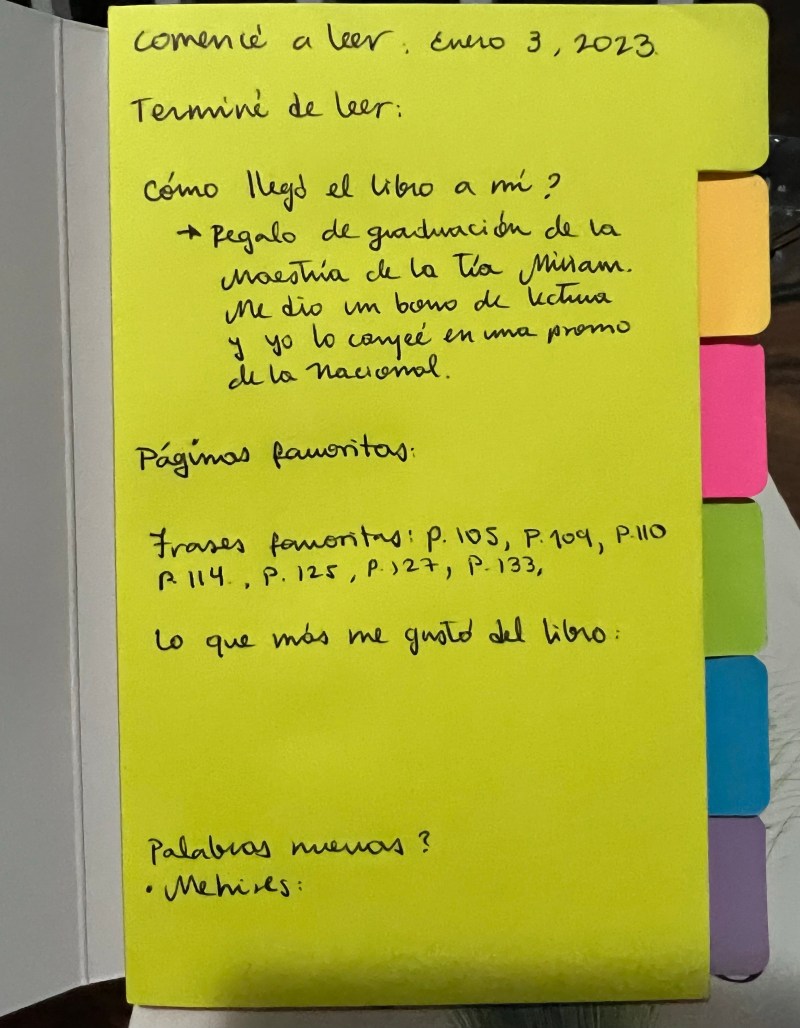 Comencé a leer: Enero 3, 2023.
Terminé de leer:
Cómo llegó el libro a mí?
→ Regalo de graduación de la
Maestría de la Tía Miriam.
Me dio un bono de lectura
y yo lo canjeé en una promo
de la Nacional.
Páginas favoritas:
Frases favoritas: P. 105, P. 109, P. 110
P. 114., P. 125, P. 127, P. 133,
Lo que más me gustó del libro:
Palabras nuevas?
• Menires: